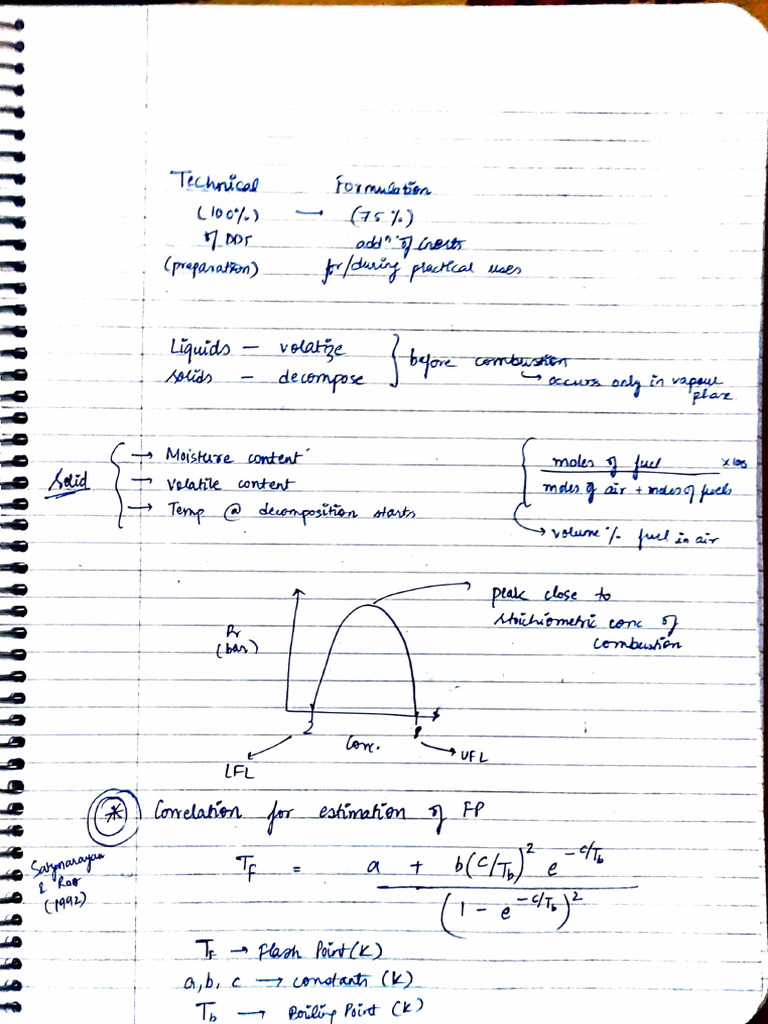 Technical Formulation
(100%) → (75%)
of DDT addⁿ of inerts
(preparation) for/during practical uses
Liquids – volatize } before combustion
solids – decompose ↳ occurs only in vapour phase
Solid { → Moisture content
→ volatile content
→ Temp @ decomposition starts
moles of fuel ×100
moles of air + moles of fuels
→ volume % fuel in air
peak close to
stoichiometric conc of
combustion
Pr
(bar)
2 Conc. 8
LFL UFL
* Correlation for estimation of FP
Satyanarayan
& Rao
(1992)
T_F = a + b(c/T_b)² e^(-c/T_b)
(1 - e^(-c/T_b))²
T_F → Flash Point (K)
a, b, c → constants (K)
T_b → Boiling Point (K)